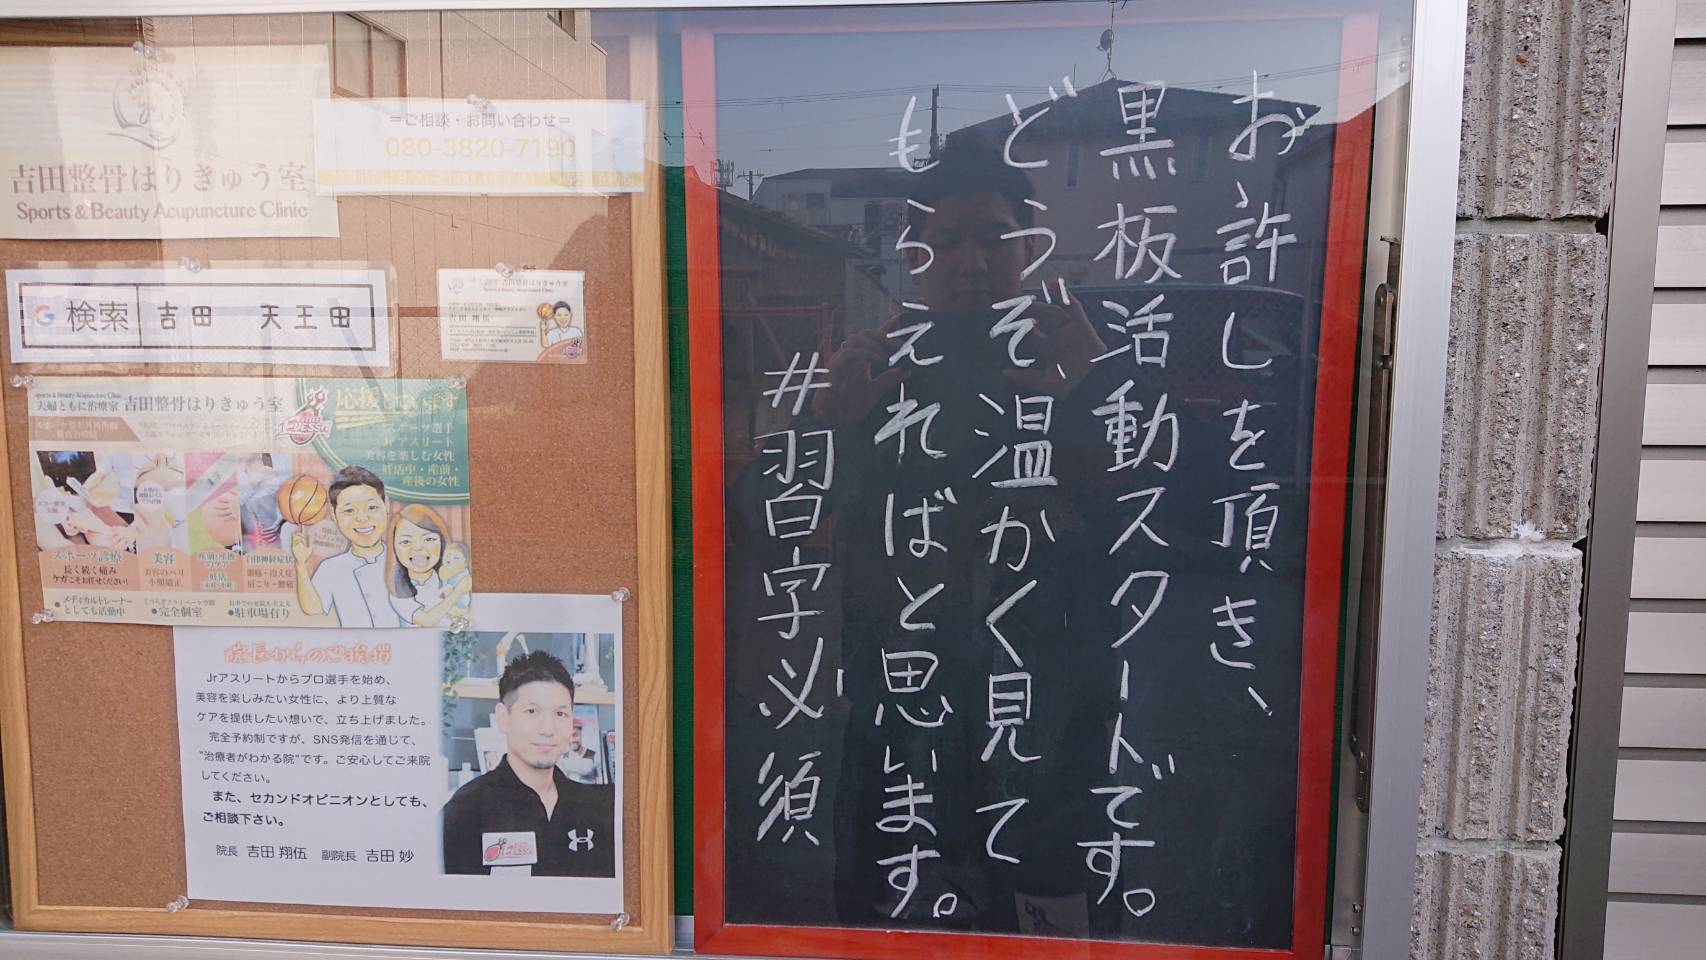 吉田整骨はりきゅう室
Sports & Beauty Acupuncture Clinic
=ご相談・お問い合わせ=
080-3820-7190
検索 吉田 天王田
吉田整骨はりきゅう室
Sports & Beauty Acupuncture Clinic
夫婦ともに治療家 吉田整骨はりきゅう室
応援しています
スポーツ選手
Jrアスリート
美容を楽しむ女性
妊活中・産前・
産後の女性
スポーツ診療
長く続く痛み
ケガこそお任せください!
美容
美容のハリ
小顔矯正
産前・産後
のケア
妊活
自律神経症状
頭痛・冷え症
肩こり・腰痛
●メディカルトレーナー
としても活動中
●完全個室
●駐車場有り
院長からのご挨拶
Jrアスリートからプロ選手を始め、
美容を楽しみたい女性に、より上質な
ケアを提供したい想いで、立ち上げました。
完全予約制ですが、SNS発信を通じて、
"治療者がわかる院"です。ご安心してご来院
してください。
また、セカンドオピニオンとしても、
ご相談下さい。
院長 吉田 翔伍 副院長 吉田 妙
お許しを頂き、
黒板活動スタートです。
どうぞ、温かく見て
もらえればと思います。
#習字必須